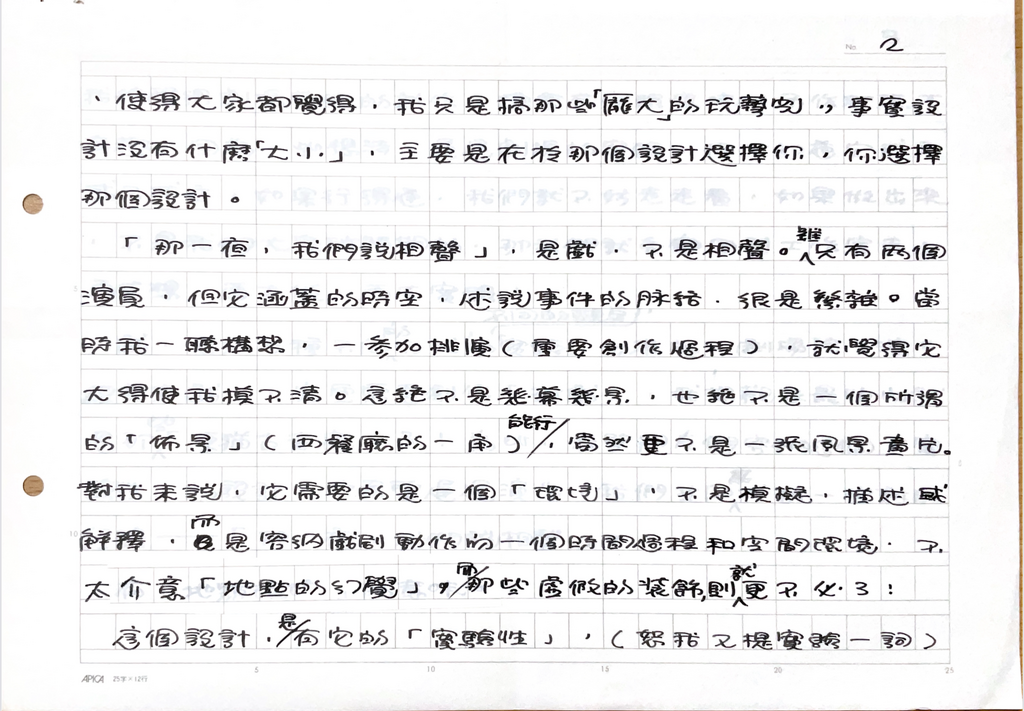 No. 2
、使得大家都覺得,我只是搞那些「龐大」的玩藝兒」,事實設
計沒有什麼「大小」,主要是在於那個設計選擇你,你選擇
那個設計。
「那一夜,我們說相聲」,是戲,不是相聲。雖只有兩個
演員,但它涵蓋的時空,述說事件的脈絡,很是繁雜。當
時我一聽構想,一參加排演(重要創作過程),就覺得它
大得使我摸不清。這絕不是幾幕幾景,也絕不是一個所謂
的「佈景」(西餐廳的一角)能行,當然更不是一張風景畫片。
對我來說,它需要的是一個「環境」,不是模擬,描述或
解釋,而是容納戲劇動作的一個時間過程和空間環境。不
太介意「地點的幻覺」,而那些虛假的裝飾,則就更不必了!
這個設計,是有它的「實驗性」,(恕我又提實驗一詞)
5 10 15 20 25
10
APICA 25字×12行